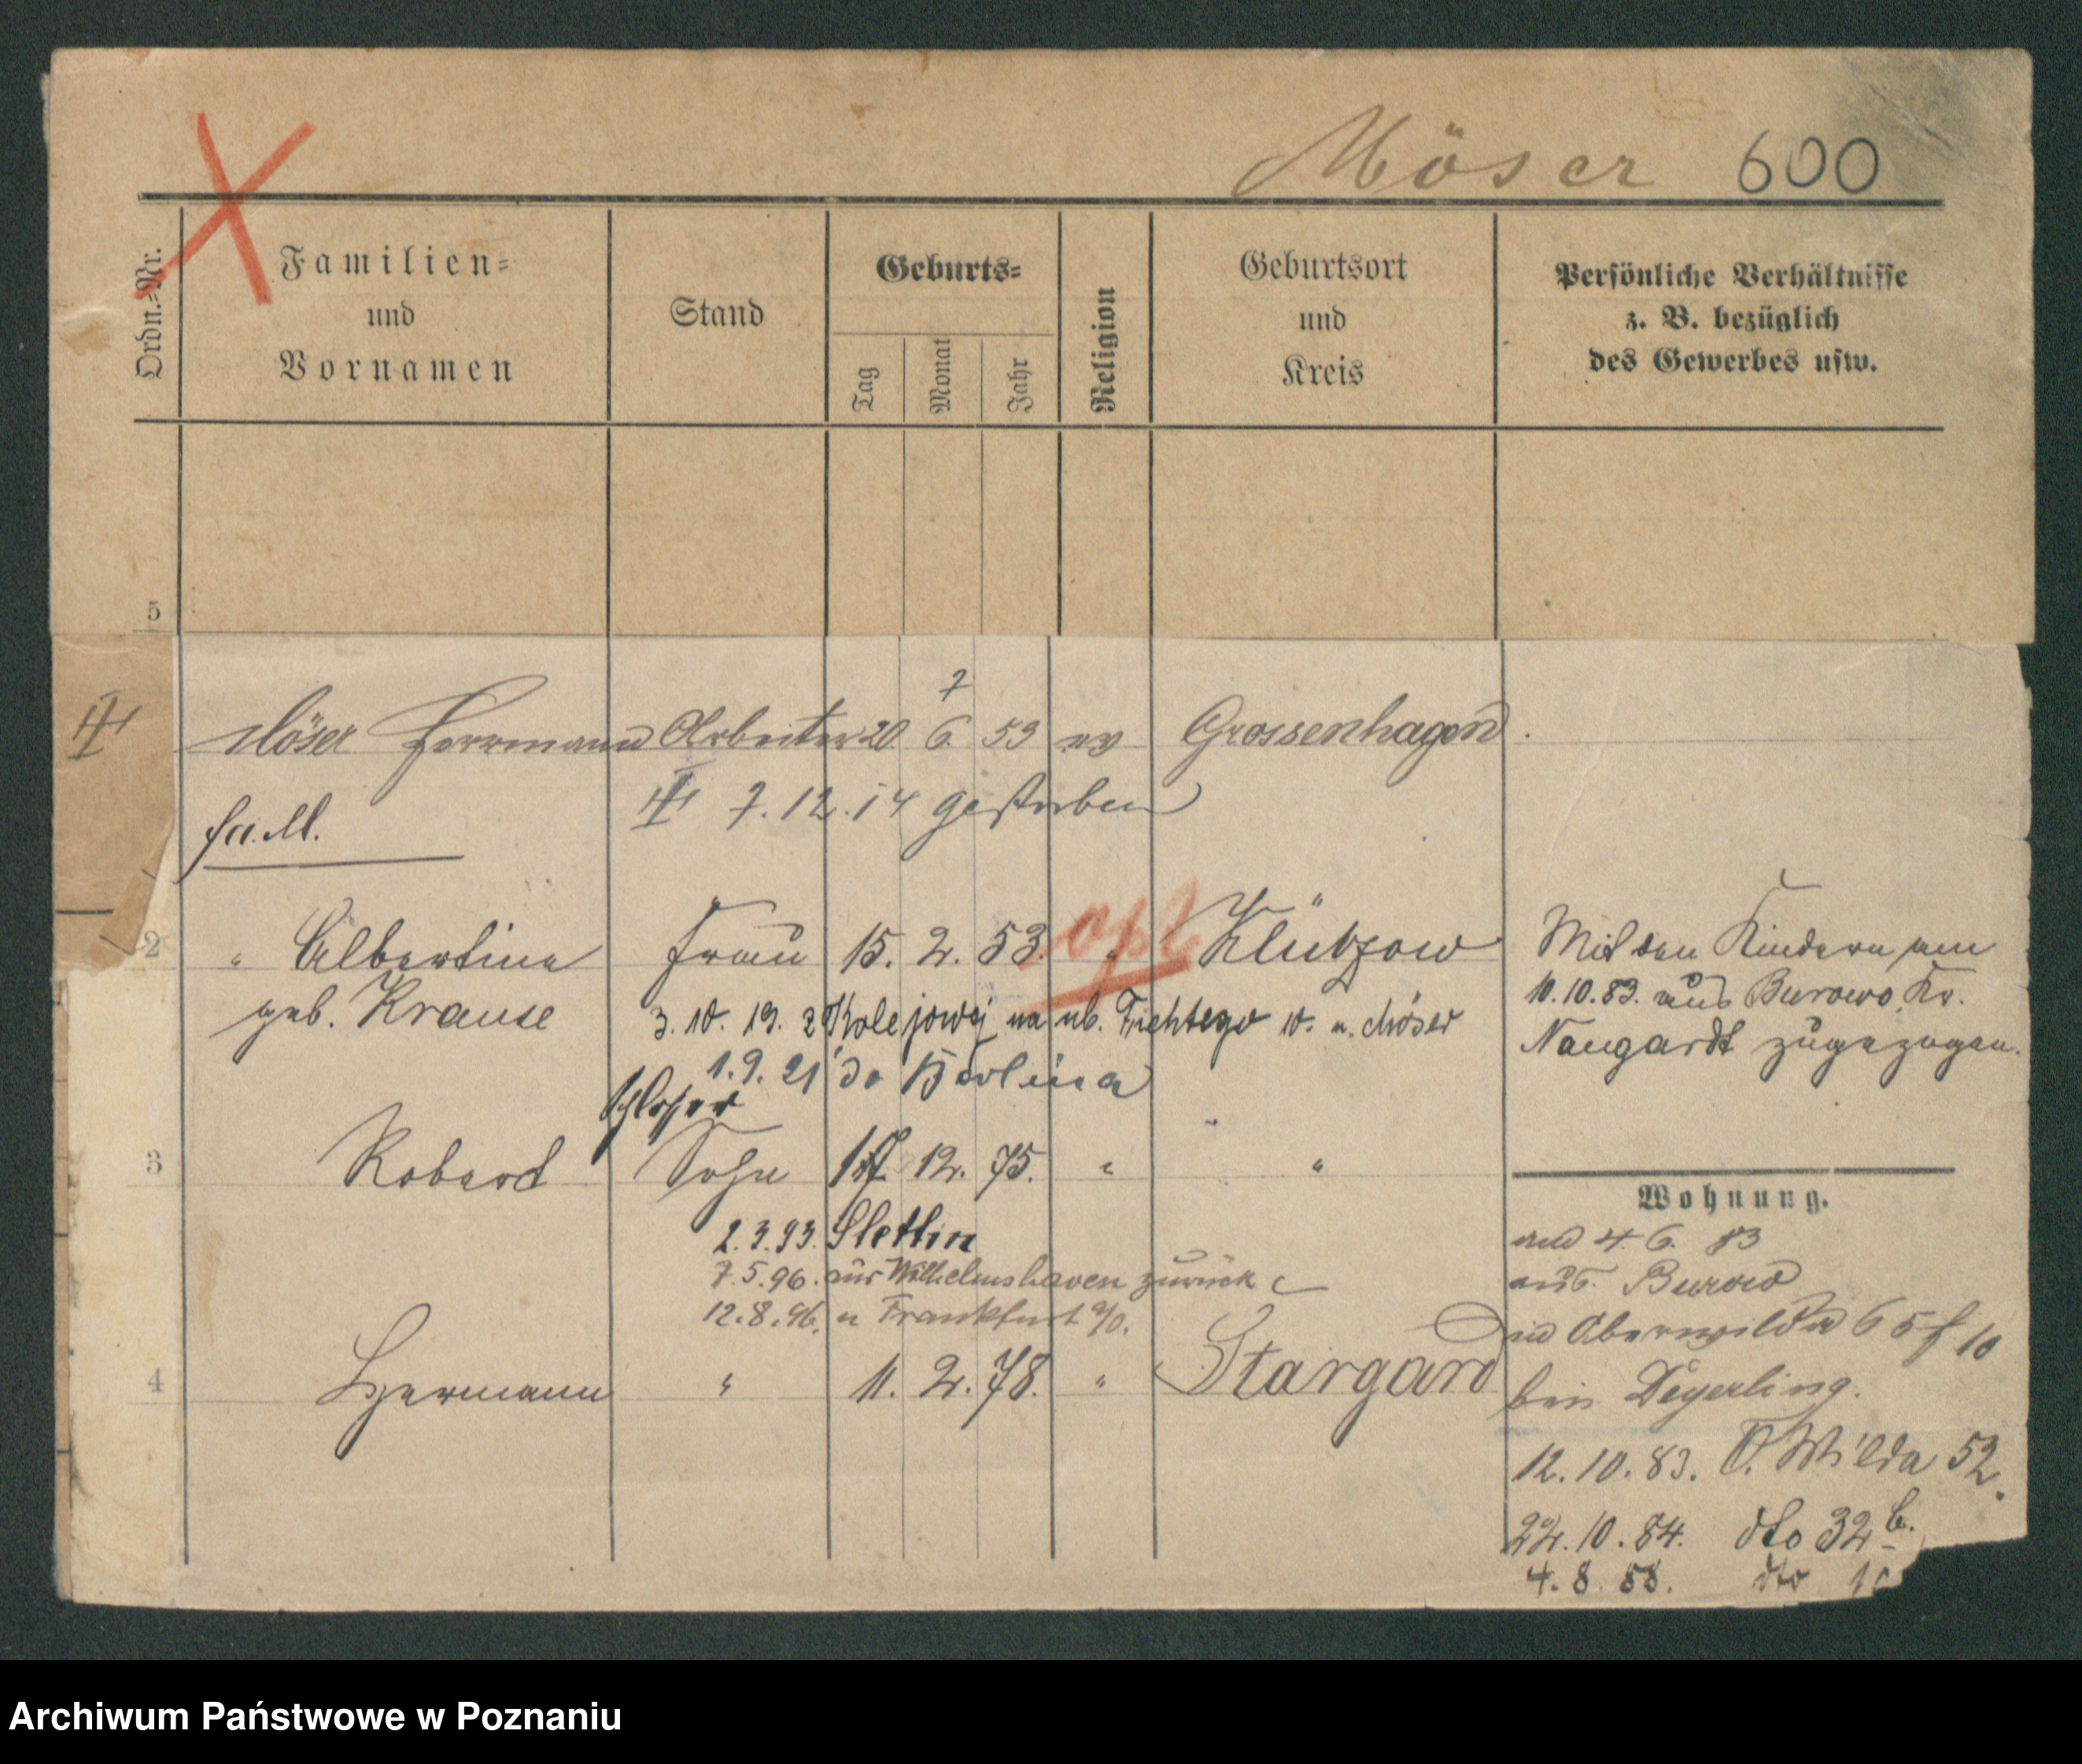 Möser 600
Ordn.-Nr.
Familien-
und
Vornamen
Stand
Geburts-
Tag
Monat
Jahr
Religion
Geburtsort
und
Kreis
Persönliche Verhältnisse
z. B. bezüglich
des Gewerbes usw.
5
7
Möser Herrmann Arbeiter 20 6. 53 ev Grossenhagen.
7.12.14 gestorben
fa. M.
2 " Albertine Frau 15. 2. 53. " Klützow
geb. Krause
3. 10. 19. z Kolejowej na ub. Fichtego 10. u. Möser
1.9. 21 do Berlina
Mit den Kindern am
10.10.83. aus Burowo, Kr.
Naugardt zugezogen.
Schlosser
3 Robert Sohn 12. 75. " "
2.3.93. Stettin
7.5.96. aus Wilhelmshaven zurück
12.8.96. n Frankfurt a/O.
4 Hermann " 11. 2. 78. " Stargard
Wohnung.
4. 6. 83
aus. Burow
in Oberwilda 65 f 10
bei Degerling.
12.10.83. O. Wilda 52.
22.10.84. dto 32 b.
4.8.88. dto
Archiwum Państwowe w Poznaniu